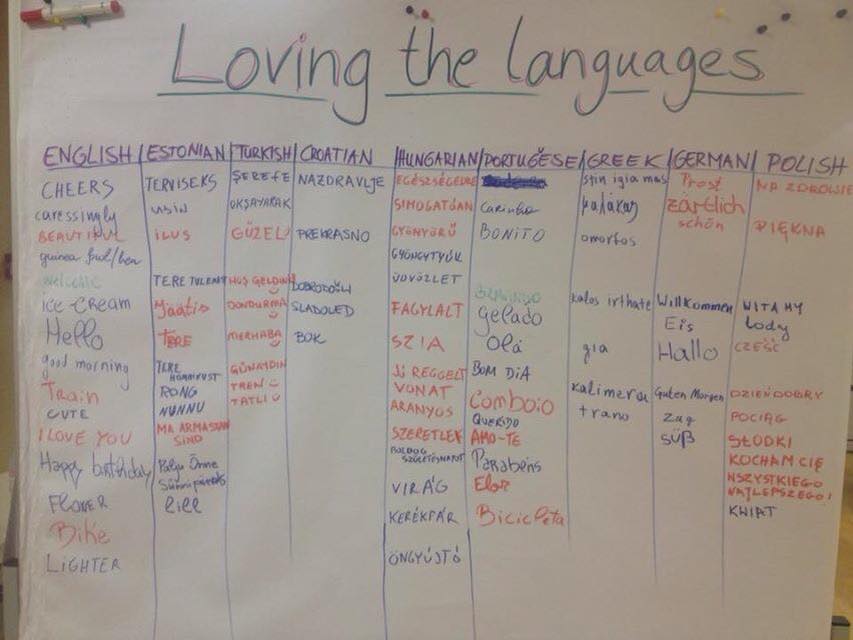 Loving the languages
ENGLISH
ESTONIAN
TURKISH
CROATIAN
HUNGARIAN
PORTUGESE
GREEK
GERMAN
POLISH
CHEERS
caressingly
BEAUTIFUL
guinea fowl/hen
welcome
ICE-CREAM
Hello
good morning
Train
CUTE
I LOVE YOU
Happy birthday
FLOWER
Bike
LIGHTER
TERVISEKS
ILUS
TERE TULEMAST
Jäätis
TERE
TERE
HOMMIKUST
RONG
NUNNU
MA ARMASTAN
SIND
Palju Õnne
Sünnipäevaks
lill
ŞEREFE
OKŞAYARAK
GÜZEL
HOŞ GELDIN
DONDURMA
MERHABA
GÜNAYDIN
TREN
TATLI
NAZDRAVLJE
PREKRASNO
DOBRODOŠLI
SLADOLED
BOK
EGÉSZSÉGEDRE
SIMOGATÓAN
GYÖNYÖRŰ
GYÖNGYTYÚK
ÜDVÖZLET
FAGYLALT
SZIA
JÓ REGGELT
VONAT
ARANYOS
SZERETLEK
BOLDOG
SZÜLETÉSNAPOT
VIRÁG
KERÉKPÁR
ÖNGYÚJTÓ
Carinho
BONITO
gelado
Olá
BOM DIA
Comboio
QUERIDO
AMO-TE
Parabéns
Bicicleta
stin igia mas
omorfos
kalos irthate
gia
kalimera
trano
Prost
zärtlich
schön
Willkommen
Eis
Hallo
Guten Morgen
Zug
süß
NA ZDROWIE
PIĘKNA
WITAMY
lody
CZEŚĆ
DZIEŃ DOBRY
POCIĄG
SŁODKI
KOCHAM CIĘ
WSZYSTKIEGO
NAJLEPSZEGO!
KWIAT